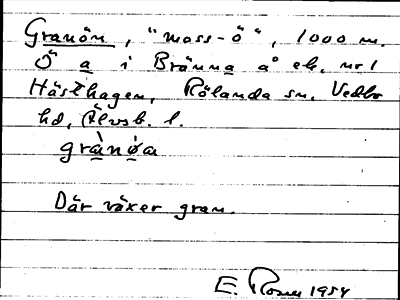 Granön, "moss-ö", 1000 m.
Ö a i Bränna å ek. nr 1
Hästhagen, Rölanda sn, Vedbo
hd, Älvsb. l.
grànȯa
Där växer gran.
E. Rosen 1954